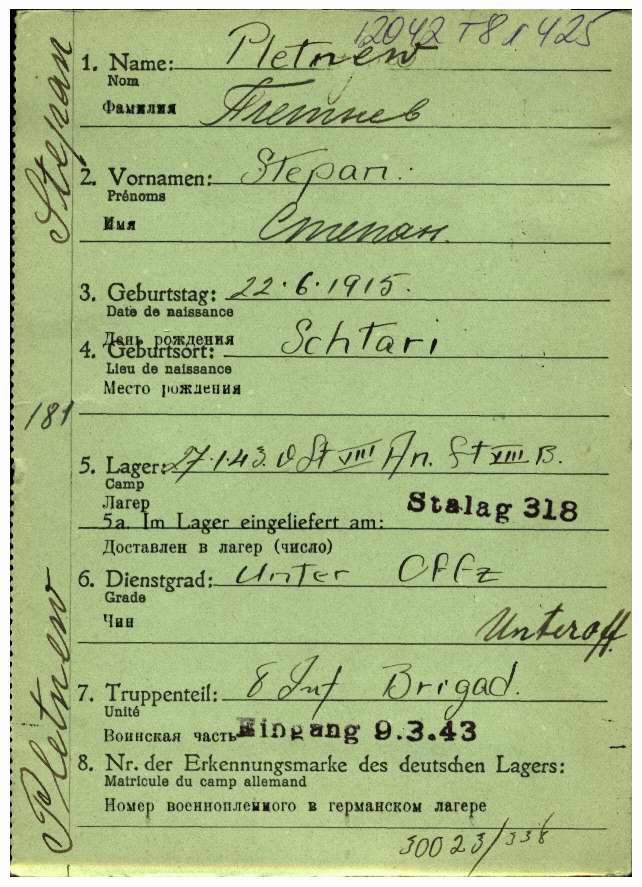 12042 T8 1 425
1. Name: Pletnew
Nom
Фамилия Плетнев
2. Vornamen: Stepan.
Prénoms
Имя Степан.
3. Geburtstag: 22.6.1915.
Date de naissance
День рождения
4. Geburtsort: Schtari
Lieu de naissance
Место рождения
5. Lager: 27.1.43. St VIII An. St XIII B.
Camp
Лагер Stalag 318
5a. Im Lager eingeliefert am:
Доставлен в лагер (число)
6. Dienstgrad: Unter Offz
Grade
Чин Unteroff.
7. Truppenteil: 8 Inf Brigad.
Unité
Воинская часть Eingang 9.3.43
8. Nr. der Erkennungsmarke des deutschen Lagers:
Matricule du camp allemand
Номер военнопленного в германском лагере
30023/338
Stepan
181
Pletnew